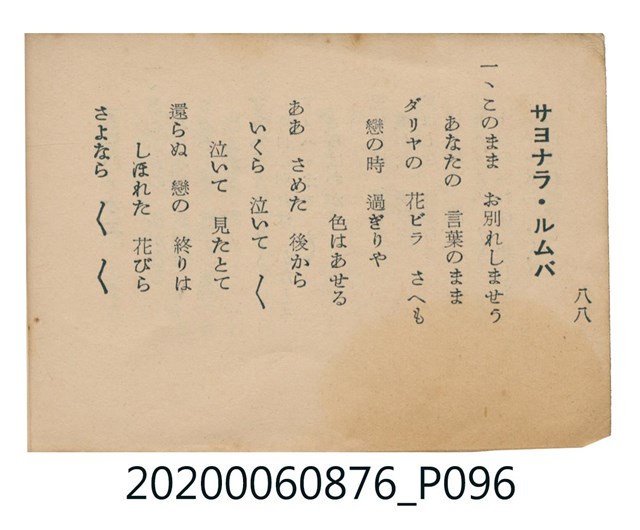 八八
サヨナラ・ルムバ
一、このまま　お別れしませう
あなたの　言葉のまま
ダリヤの　花ビラ　さへも
戀の時　過ぎりや
色はあせる
ああ　さめた　後から
いくら　泣いて〱
泣いて　見たとて
還らぬ　戀の　終りは
しほれた　花びら
さよなら　〱〱
20200060876_P096